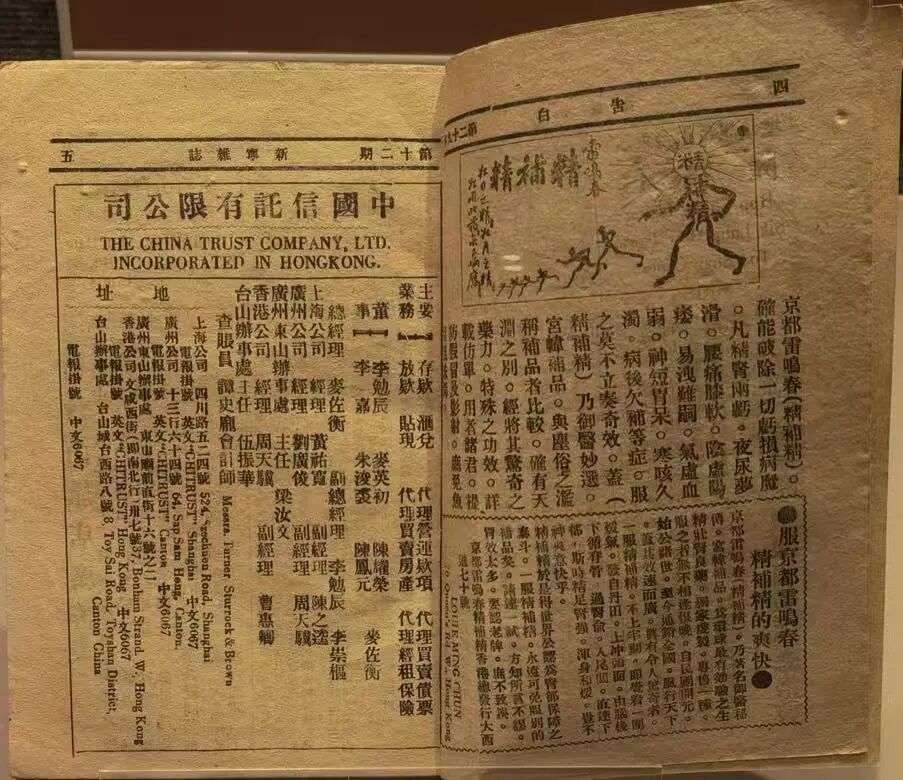 四
告白
第二十九
雷鳴春
精補精
精補精
京都雷鳴春(精補精)。
確能破除一切虧損病魔
。凡精腎兩虧。夜尿夢
滑。腰痛膝軟。陰虛陽
痿。易洩難嗣。氣虛血
弱。神短胃呆。寒咳久
濁。病後欠補等症。服
之莫不立奏奇效。蓋(
精補精)乃御醫妙選。
宮幃補品。與塵俗之濫
稱補品者比較。確有天
淵之別。經將其驚奇之
藥力。特殊之功效。詳
載仿單。用者諸君。提
防假冒及影射。庶免魚
●服京都雷鳴春
精補精的爽快●
京都雷鳴春(精補精)。乃著名御醫秘
服之者無不相逢恨晚。自民國開元。
始公諸世。至今通銷全國。風行天下
一服精補精。不上半刻。即覺着一團
煖氣。發自丹田。上冲頭面。由腦後
下循脊骨。過腎俞。入尾閭。直達下
部。斯時精足腎强。渾身和煖。豈不
神爽意快乎。
精補精於是得世界公認爲腎部保障之
泰斗。一服精補精。永遠可免服別的
補品矣。請速一試。方知所言不謬。
胃效太多。要認老牌。庶不致誤。
京都雷鳴春精補精香港總發行大西
道七十號
LOUIE MING CHUN
70 Queen's Rd. W., Hong Kong
第十二期
新寧雜誌
五
中國信託有限公司
THE CHINA TRUST COMPANY, LTD.
INCORPORATED IN HONGKONG.
主要業務
存欵 滙兌 代理營運欵項 代理買賣債票
放欵 貼現 代理買賣房產 代理經租保險
董事
李勉辰 麥英初 陳耀榮 麥佐衡
李嘉 朱浚裘 陳鳳元 李崇樞
總經理 麥佐衡 副總經理 李勉辰
上海公司 經理 黃祐寬 副經理 陳之逵
廣州公司 經理 劉廣俊 副經理 周天驥
廣州東山辦事處 主任 梁汝文
香港公司 經理 周天驥 副經理 曹惠卿
台山辦事處 主任 伍振華
查賬員 譚史龐會計師 Messrs. Turner Sturrock & Brown
地址
上海公司 四川路五二四號 524, Szechuen Road, Shanghai
電報掛號 英文"CHITRUST" Shanghai 中文6067
廣州公司 十三行六十四號 64, Sap Sam Hong, Canton.
電報掛號 英文"CHITRUST" Canton 中文6067
廣州東山辦事處 東山廟前直街十六號
香港公司 文咸西街(即南北行)卅七號 37, Bonham Strand, W., Hong Kong
電報掛號 英文"CHITRUST" Hong Kong 中文6067
台山辦事處 台山城台西路八號 8, Toy Sai Road, Toyshan District,
Canton China
電報掛號 中文6067